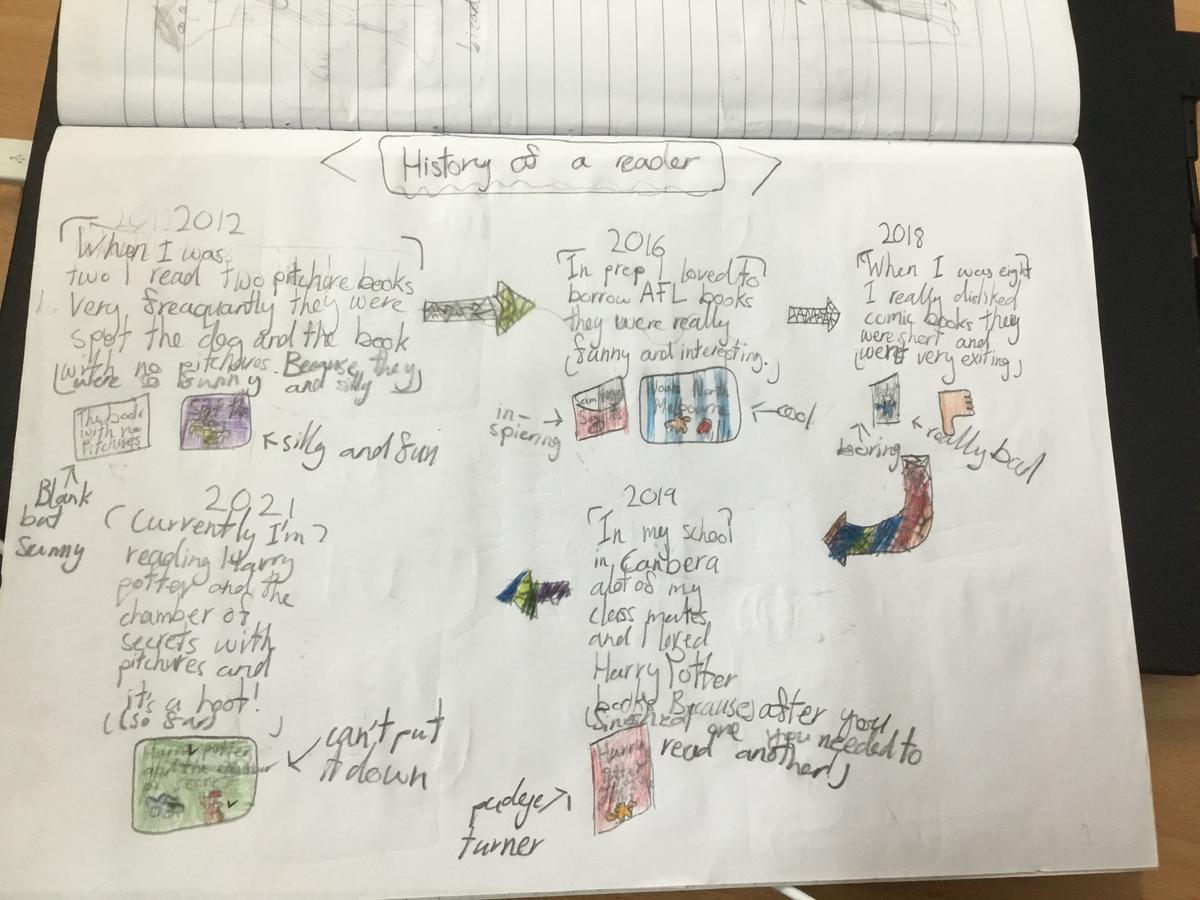 History of a reader
2012
When I was
two I read two pitchire books
Very freaquantly they were
spot the dog and the book
with no pitchures. Because they
were so funny and silly
The book
with no
Pitchures
Spot the
silly and fun
Blank
but
funny
2016
In prep I loved to
borrow AFL books
they were really
funny and interesting.
in-
spiering
cool
Melbourne
2018
When I was eight
I really disliked
comic books they
were short and
weren't very exiting
boaring
really bad
2019
In my school
in Canbera
alot of my
class mates
and I loved
Harry Potter
books Because after you
finished one you needed to
read another
Harry
padge
turner
2021
Currently I'm
reading Harry
potter and the
chamber of
secrets with
pitchures and
it's a hoot!
(so far)
Harry potter
and the chamber
can't put
it down